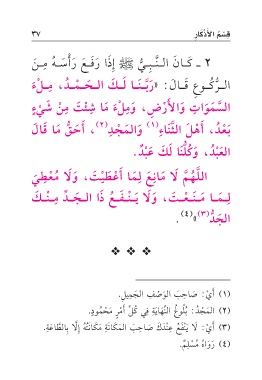 قِسْمُ الأَذْكَارِ
٣٧
٢ ـ كَـانَ النَّـبِـيُّ ﷺ إِذَا رَفَـعَ رَأْسَـهُ مِـنَ
الـرُّكُـوعِ قَـالَ: «رَبَّـنَـا لَـكَ الْـحَـمْـدُ، مِـلْءَ
السَّمَوَاتِ وَالأَرْضِ، وَمِلْءَ مَا شِئْتَ مِنْ شَيْءٍ
بَعْدُ، أَهْلَ الثَّنَاءِ(١) وَالمَجْدِ(٢)، أَحَقُّ مَا قَالَ
العَبْدُ، وَكُلُّنَا لَكَ عَبْدٌ.
اللَّهُمَّ لَا مَانِعَ لِمَا أَعْطَيْتَ، وَلَا مُعْطِيَ
لِـمَـا مَـنَـعْـتَ، وَلَا يَـنْـفَـعُ ذَا الـجَـدِّ مِـنْـكَ
الجَدُّ(٣)»(٤).
(١) أَيْ: صَاحِبَ الوَصْفِ الجَمِيلِ.
(٢) المَجْدُ: بُلُوغُ النِّهَايَةِ فِي كُلِّ أَمْرٍ مَحْمُودٍ.
(٣) أَيْ: لَا يَنْفَعُ عِنْدَكَ صَاحِبَ المَكَانَةِ مَكَانَتُهُ إِلَّا بِالطَّاعَةِ.
(٤) رَوَاهُ مُسْلِمٌ.